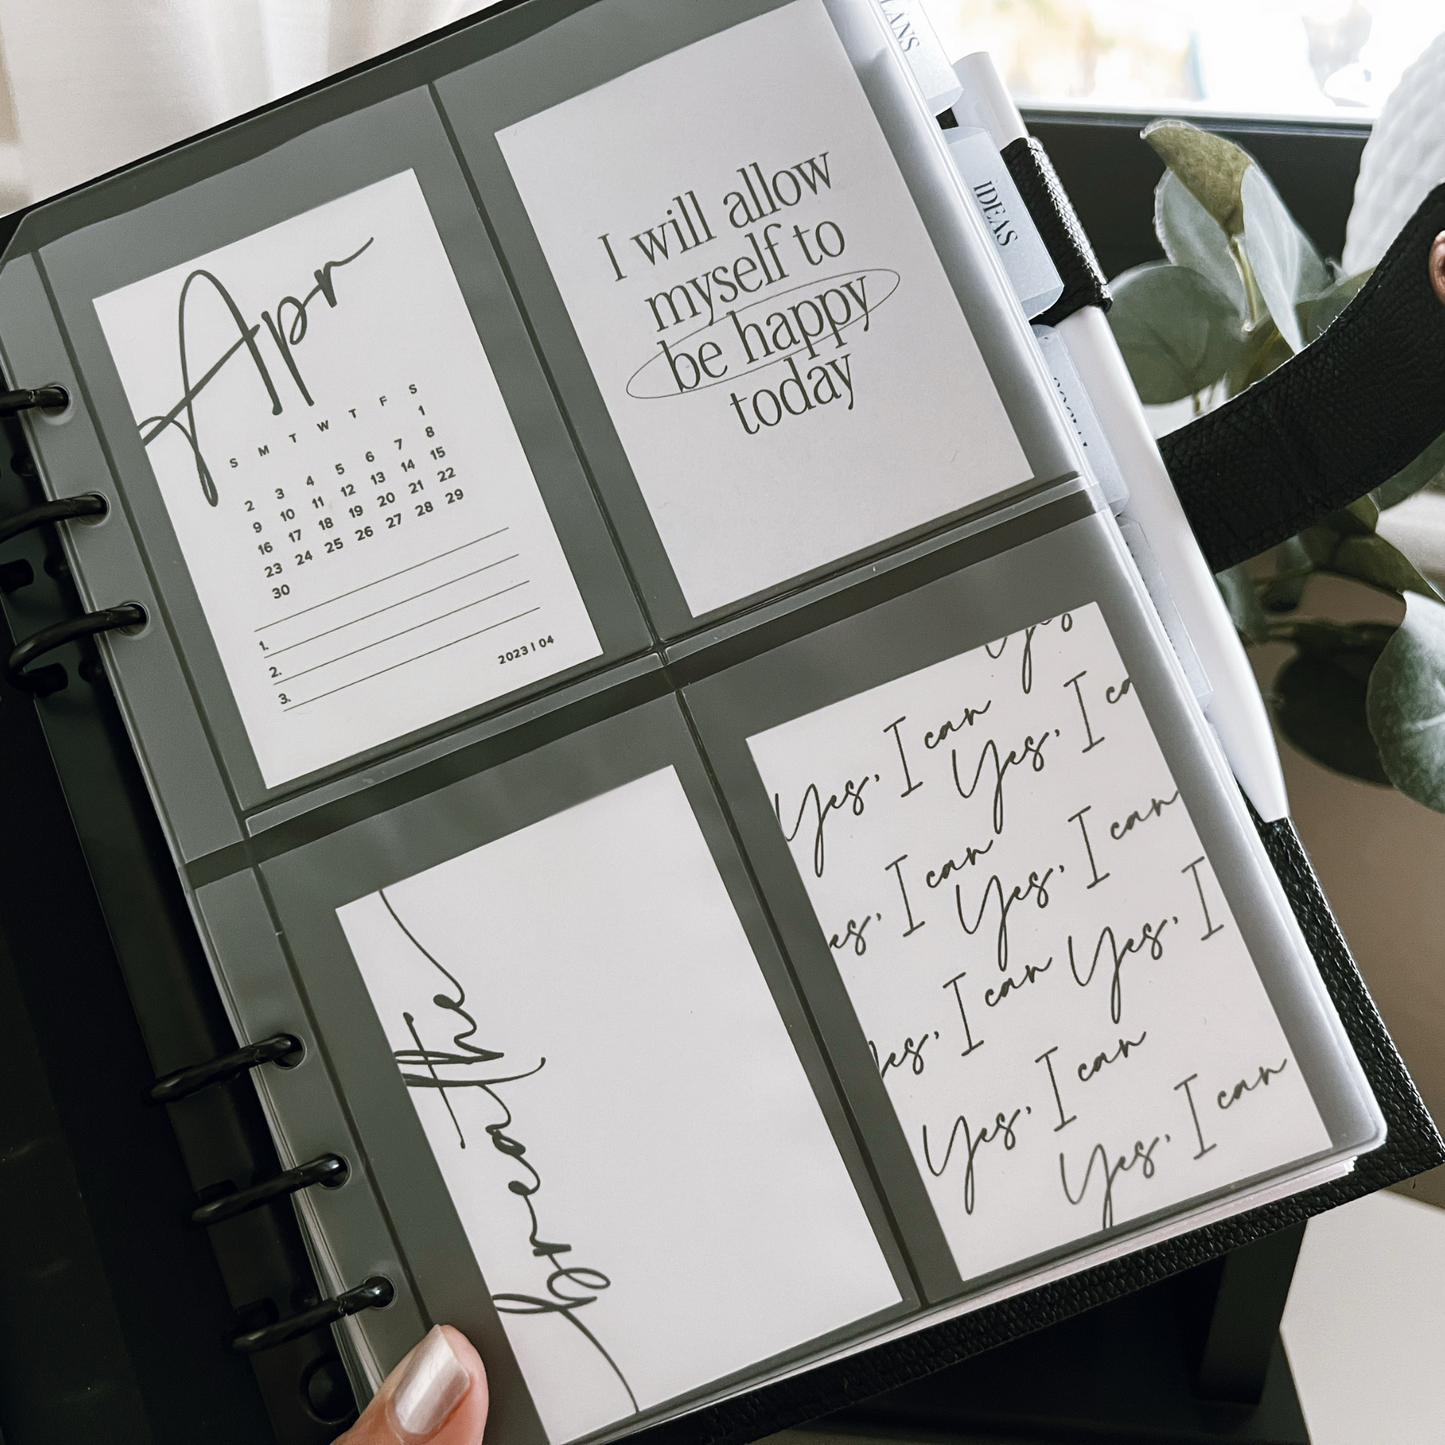 Apr
S M T W T F S
1
2 3 4 5 6 7 8
9 10 11 12 13 14 15
16 17 18 19 20 21 22
23 24 25 26 27 28 29
30
1.
2.
3.
2023 | 04
I will allow
myself to
be happy
today
Yes,
Yes, I can
Yes, I ca
es, I can
Yes, I can
Yes, I can
Yes, I
Yes, I can
Yes, I can
LANS
IDEAS